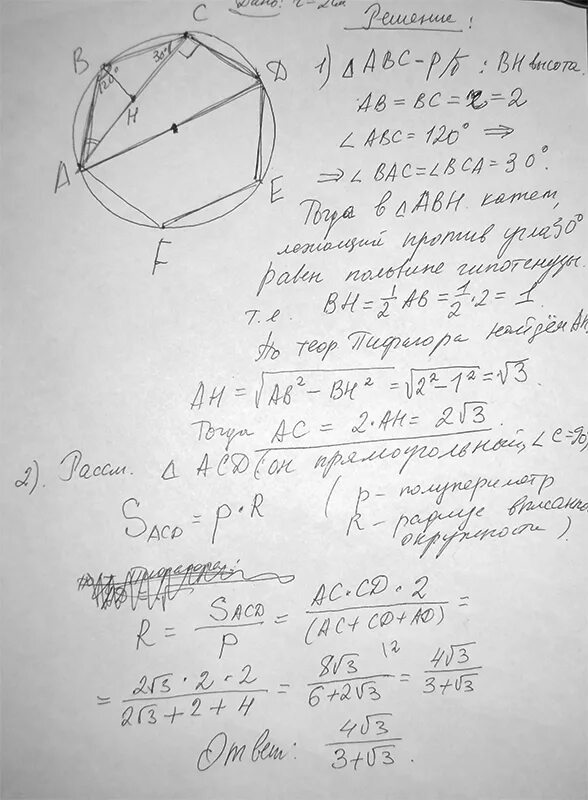 Дано: r = 2см
Решение:
C
B
D
A
H
E
F
120°
30°
1) △ABC - р/б : BH высота
AB = BC = r = 2
∠ABC = 120° ⇒
⇒ ∠BAC = ∠BCA = 30°.
Тогда в △ABH катет,
лежащий против угла 30°
равен половине гипотенузы.
т.е. BH = 1/2 AB = 1/2 · 2 = 1.
По теор. Пифагора найдём AH,
AH = √(AB² - BH²) = √(2² - 1²) = √3.
Тогда AC = 2·AH = 2√3
2). Рассм. △ ACD (он прямоугольный, ∠C=90°)
S_ACD = p·R
( p - полупериметр
R - радиус вписанной
окружности ).
R = S_ACD / p = AC·CD·2 / (AC+CD+AD) =
= 2√3·2·2 / 2√3+2+4 = 8√3 \2 / 6+2√3 = 4√3 / 3+√3
Ответ: 4√3 / 3+√3 .